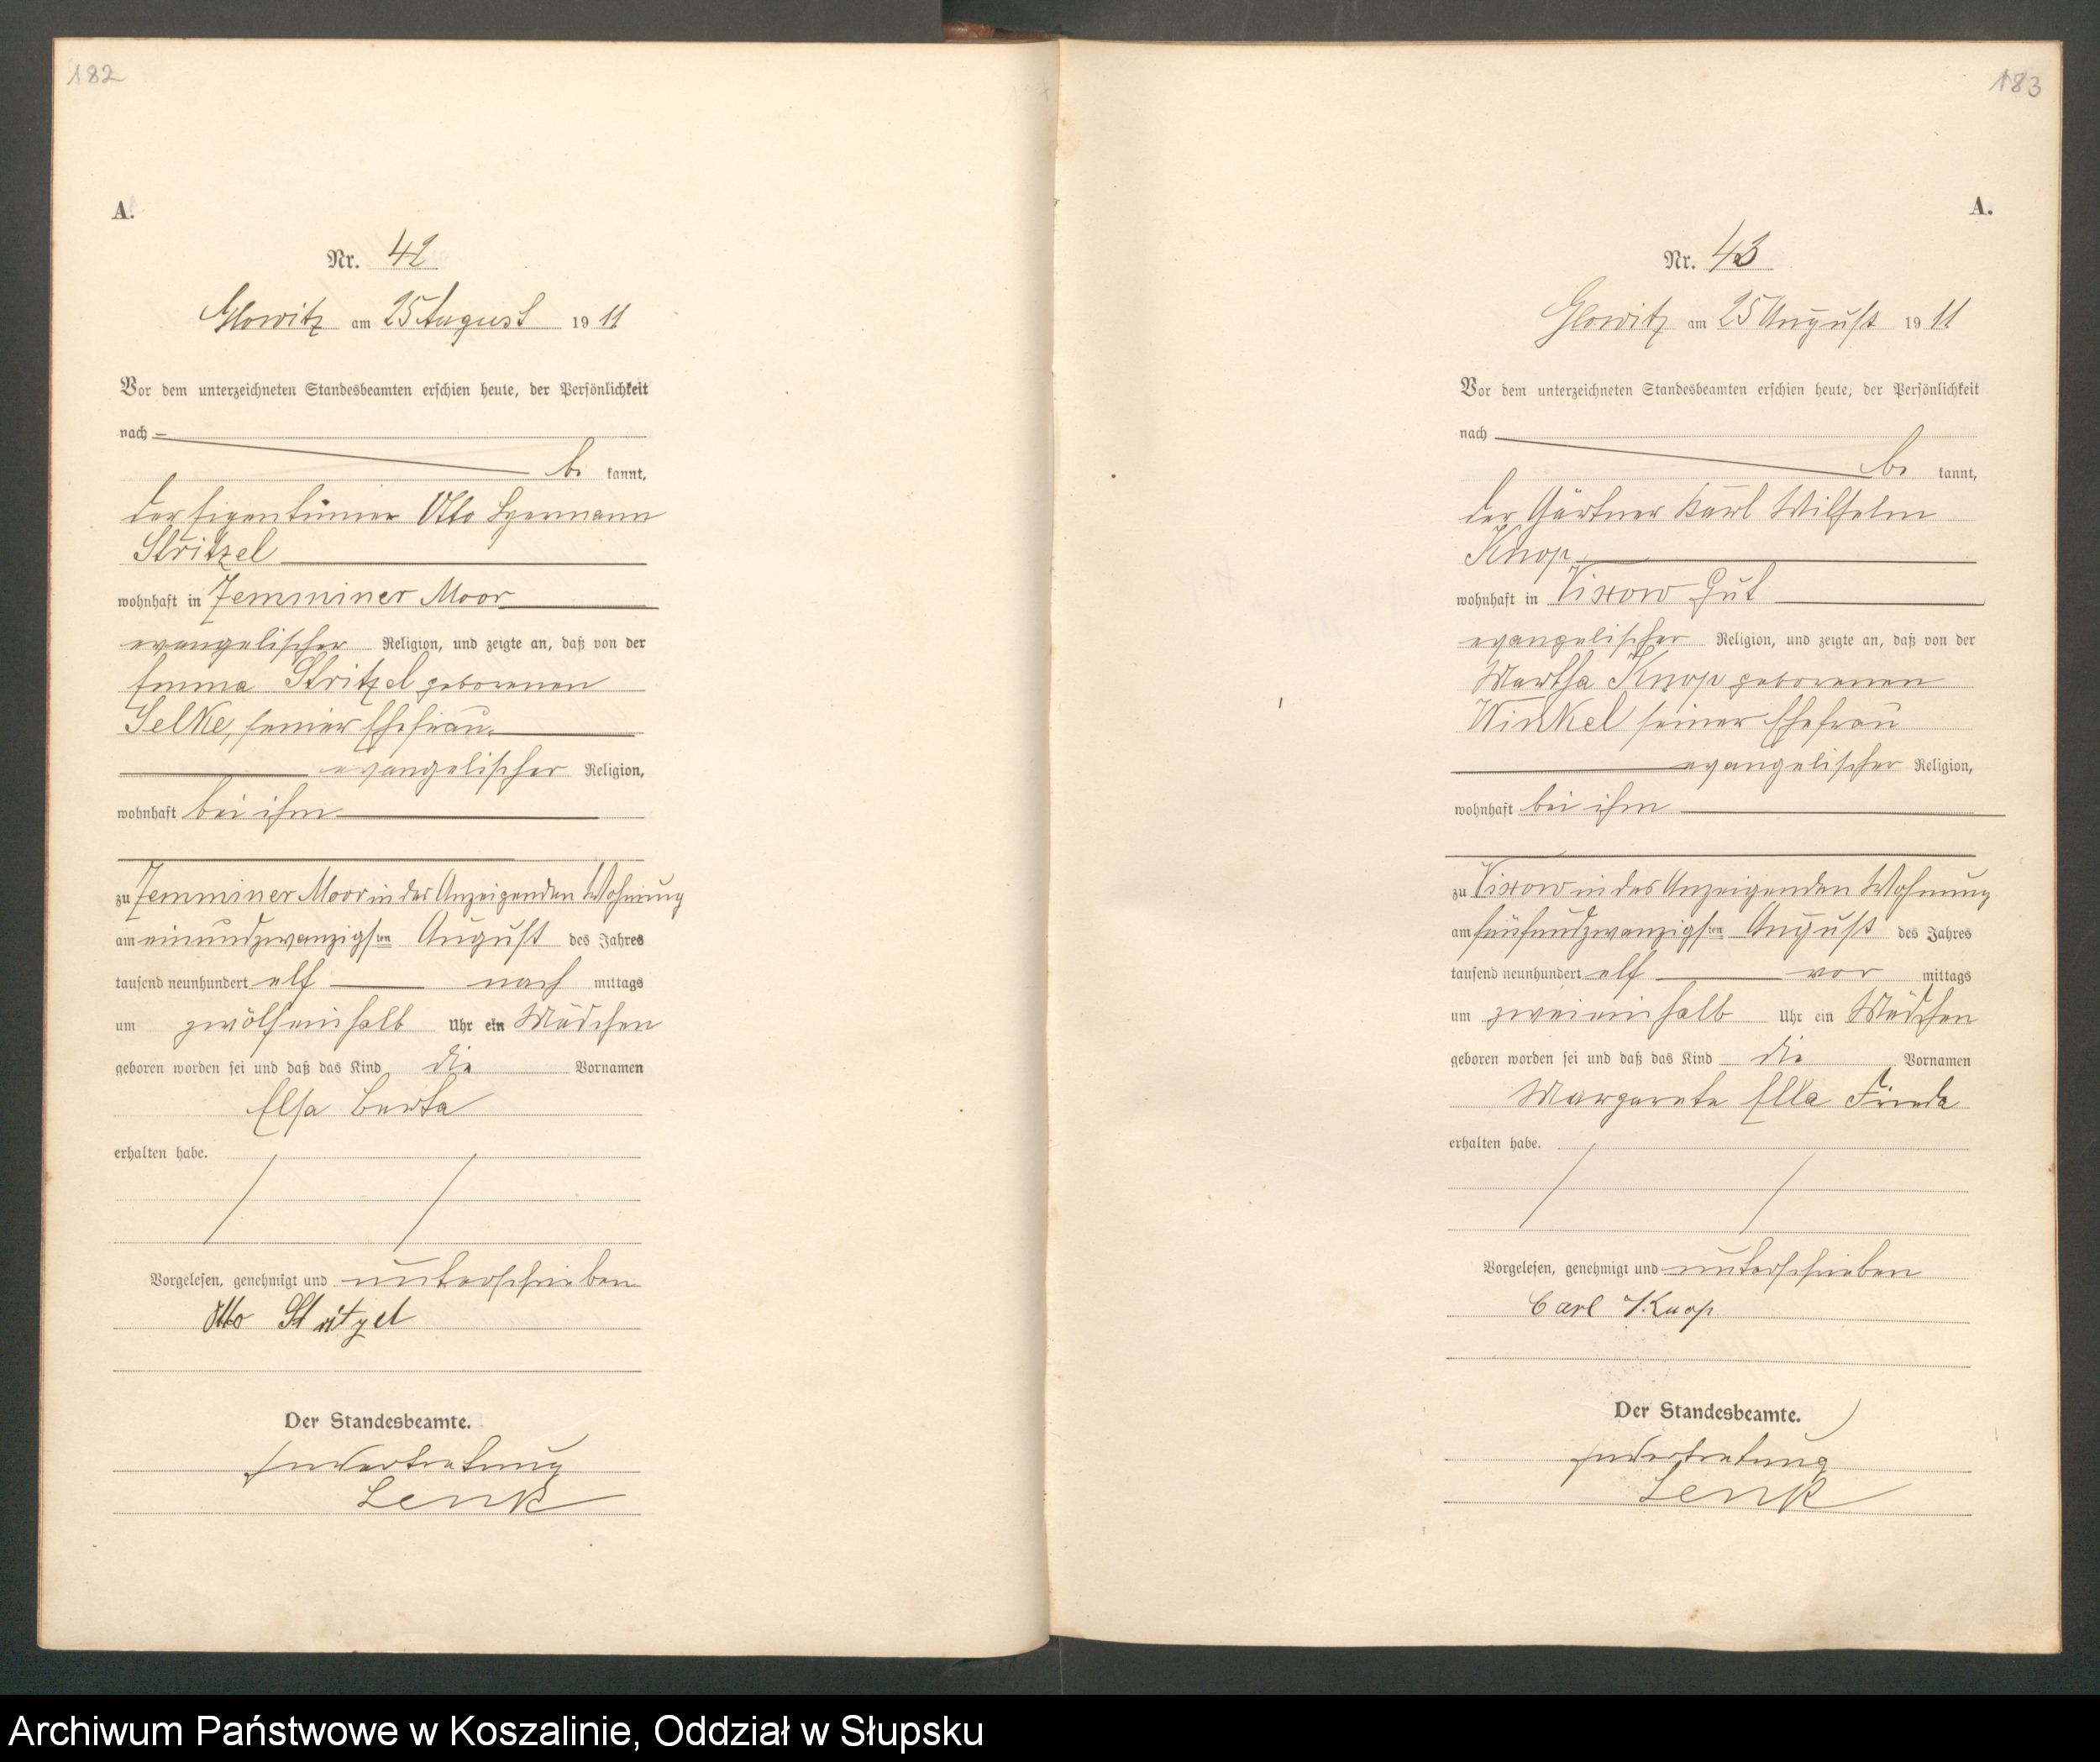 182
A.
Nr. 42
Glowitz am 25 August 1911
Vor dem unterzeichneten Standesbeamten erschien heute, der Persönlichkeit
nach
be kannt,
der Eigentümer Otto Hermann
Stritzel
wohnhaft in Zemminer Moor
evangelischer Religion, und zeigte an, daß von der
Emma Stritzel geborenen
Selke, seiner Ehefrau
evangelischer Religion,
wohnhaft bei ihm
zu Zemminer Moor in des Anzeigenden Wohnung
am einundzwanzigsten August des Jahres
tausend neunhundert elf nach mittags
um zwölfeinhalb Uhr ein Mädchen
geboren worden sei und daß das Kind die Vornamen
Elsa Berta
erhalten habe.
Vorgelesen, genehmigt und unterschrieben
Otto Stritzel
Der Standesbeamte.
In Vertretung
Lenk
183
A.
Nr. 43
Glowitz am 25 August 1911
Vor dem unterzeichneten Standesbeamten erschien heute, der Persönlichkeit
nach
be kannt,
der Gärtner Karl Wilhelm
Knop
wohnhaft in Vixow Gut
evangelischer Religion, und zeigte an, daß von der
Martha Knop geborenen
Winkel seiner Ehefrau
evangelischer Religion,
wohnhaft bei ihm
zu Vixow in des Anzeigenden Wohnung
am fünfundzwanzigsten August des Jahres
tausend neunhundert elf vor mittags
um zweieinhalb Uhr ein Mädchen
geboren worden sei und daß das Kind die Vornamen
Margarete Ella Frieda
erhalten habe.
Vorgelesen, genehmigt und unterschrieben
Carl Knop
Der Standesbeamte.
In Vertretung
Lenk
Archiwum Państwowe w Koszalinie, Oddział w Słupsku